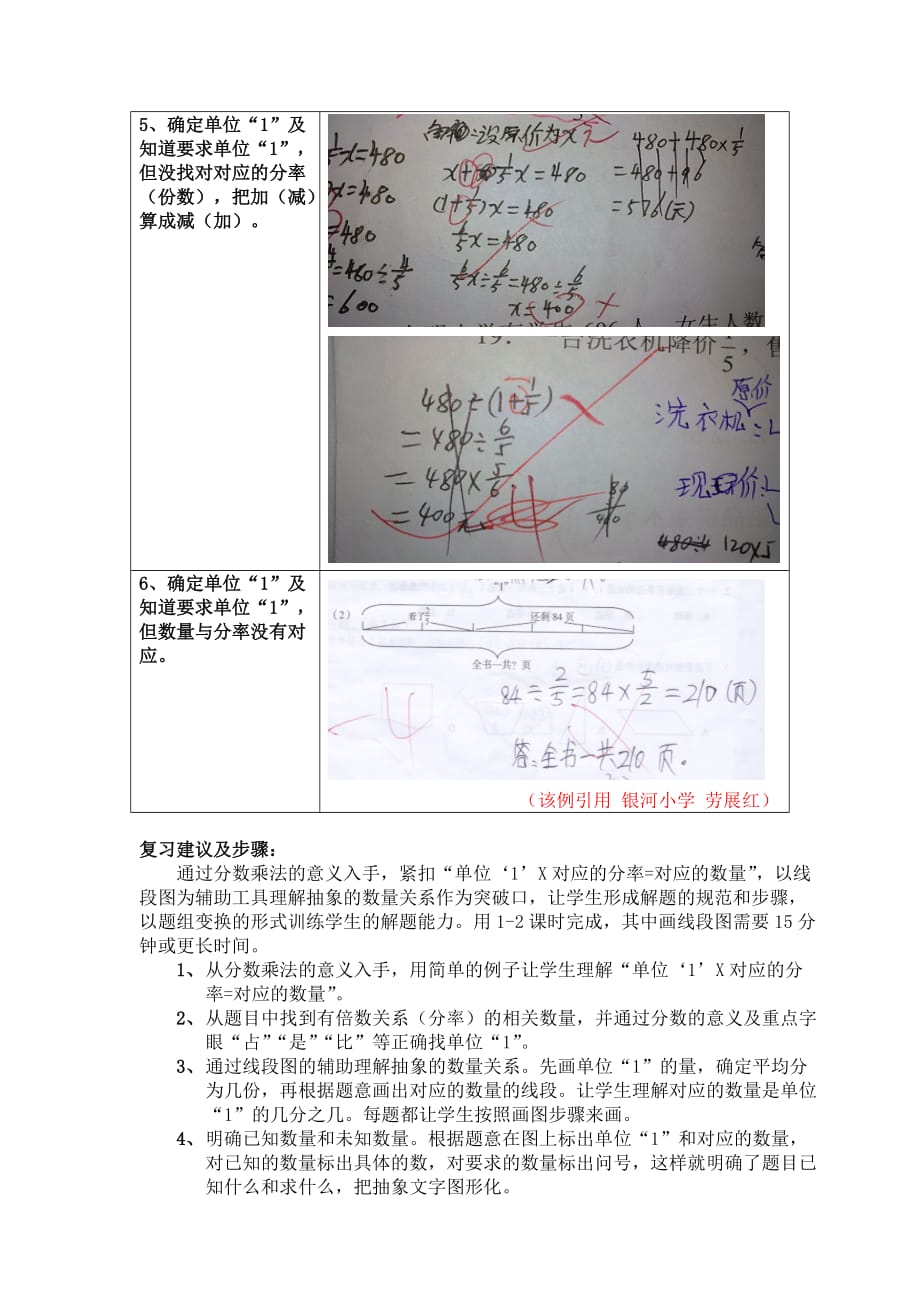 5、确定单位“1”及
知道要求单位“1”，
但没找对对应的分率
（份数），把加（减）
算成减（加）。
x=480
x=480
=480
=480÷4/5
=600
设原价为x元
x+1/5x=480
(1+1/5)x=480
x=480
6/5x÷6/5=480÷6/5
x=400
480+480×1/5
=480+96
=576(元)
19. 一台洗衣机降价1/5，售
480÷(1+1/5)
=480÷6/5
=480×5/6
=400
原价
洗衣机
现价
480÷4 120×5
6、确定单位“1”及
知道要求单位“1”，
但数量与分率没有对
应。
“1”
（2）
看了2/5 还剩84页
全书一共?页
84÷2/5=84×5/2=210(页)
答:全书一共210页。
（该例引用 银河小学 劳展红）
复习建议及步骤：
通过分数乘法的意义入手，紧扣“单位‘1’X对应的分率=对应的数量”，以线
段图为辅助工具理解抽象的数量关系作为突破口，让学生形成解题的规范和步骤，
以题组变换的形式训练学生的解题能力。用1-2课时完成，其中画线段图需要15分
钟或更长时间。
1、从分数乘法的意义入手，用简单的例子让学生理解“单位‘1’X对应的分
率=对应的数量”。
2、从题目中找到有倍数关系（分率）的相关数量，并通过分数的意义及重点字
眼“占”“是”“比”等正确找单位“1”。
3、通过线段图的辅助理解抽象的数量关系。先画单位“1”的量，确定平均分
为几份，再根据题意画出对应的数量的线段。让学生理解对应的数量是单位
“1”的几分之几。每题都让学生按照画图步骤来画。
4、明确已知数量和未知数量。根据题意在图上标出单位“1”和对应的数量，
对已知的数量标出具体的数，对要求的数量标出问号，这样就明确了题目已
知什么和求什么，把抽象文字图形化。